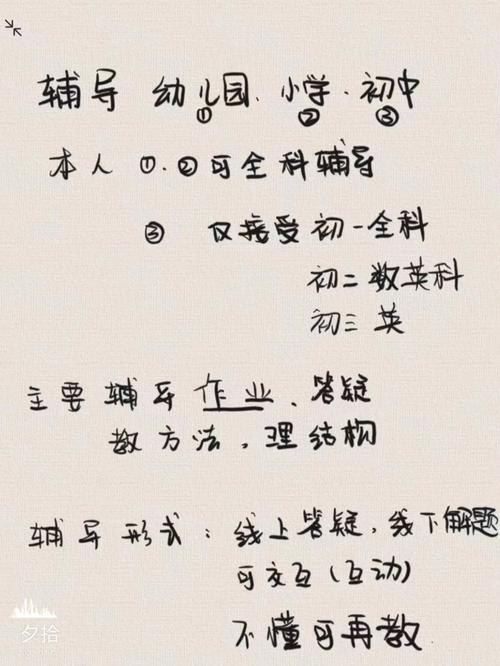 辅导 幼儿园. 小学. 初中
① ② ③
本人 ①.②可全科辅导
③ 仅接受初一全科
初二数英科
初三英
主要辅导作业、答疑
教方法,理结构
辅导形式:线上答疑,线下解题
可交互(互动)
不懂可再教.
夕拾